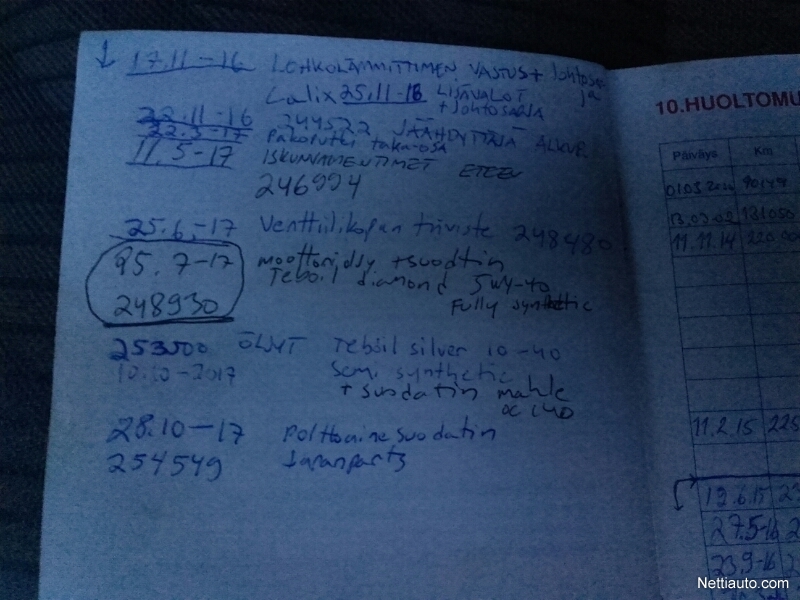 17.11-16 LOHKOLÄMMITTIMEN VASTUS + Johtosarja
Calix 25.11-16 LISÄVALOT
+ Johtosarja
22.11-16 244522 JÄÄHDYTTÄJÄ ALKUP.
22.3-17 Pakoputki taka-osa
11.5-17 ISKUNVAIMENTIMET ETEEN
246994
25.6.-17 Venttiilikopan tiiviste 248480
15.7-17 moottoriöljy + suodtin
Teboil diamond 5W-40
248930 Fully synthetic
253500 ÖLJYT Teboil silver 10-40
10.10-2017 Semi synthetic
+ suodatin mahle
oc 140
28.10-17 Polttoainesuodatin
254549 taranparts
10.HUOLTOMU
Päiväys Km
11.11.14 220
11.2.15 225
19.6.15 23
27.5-16 2
23.9-16
Nettiauto.com